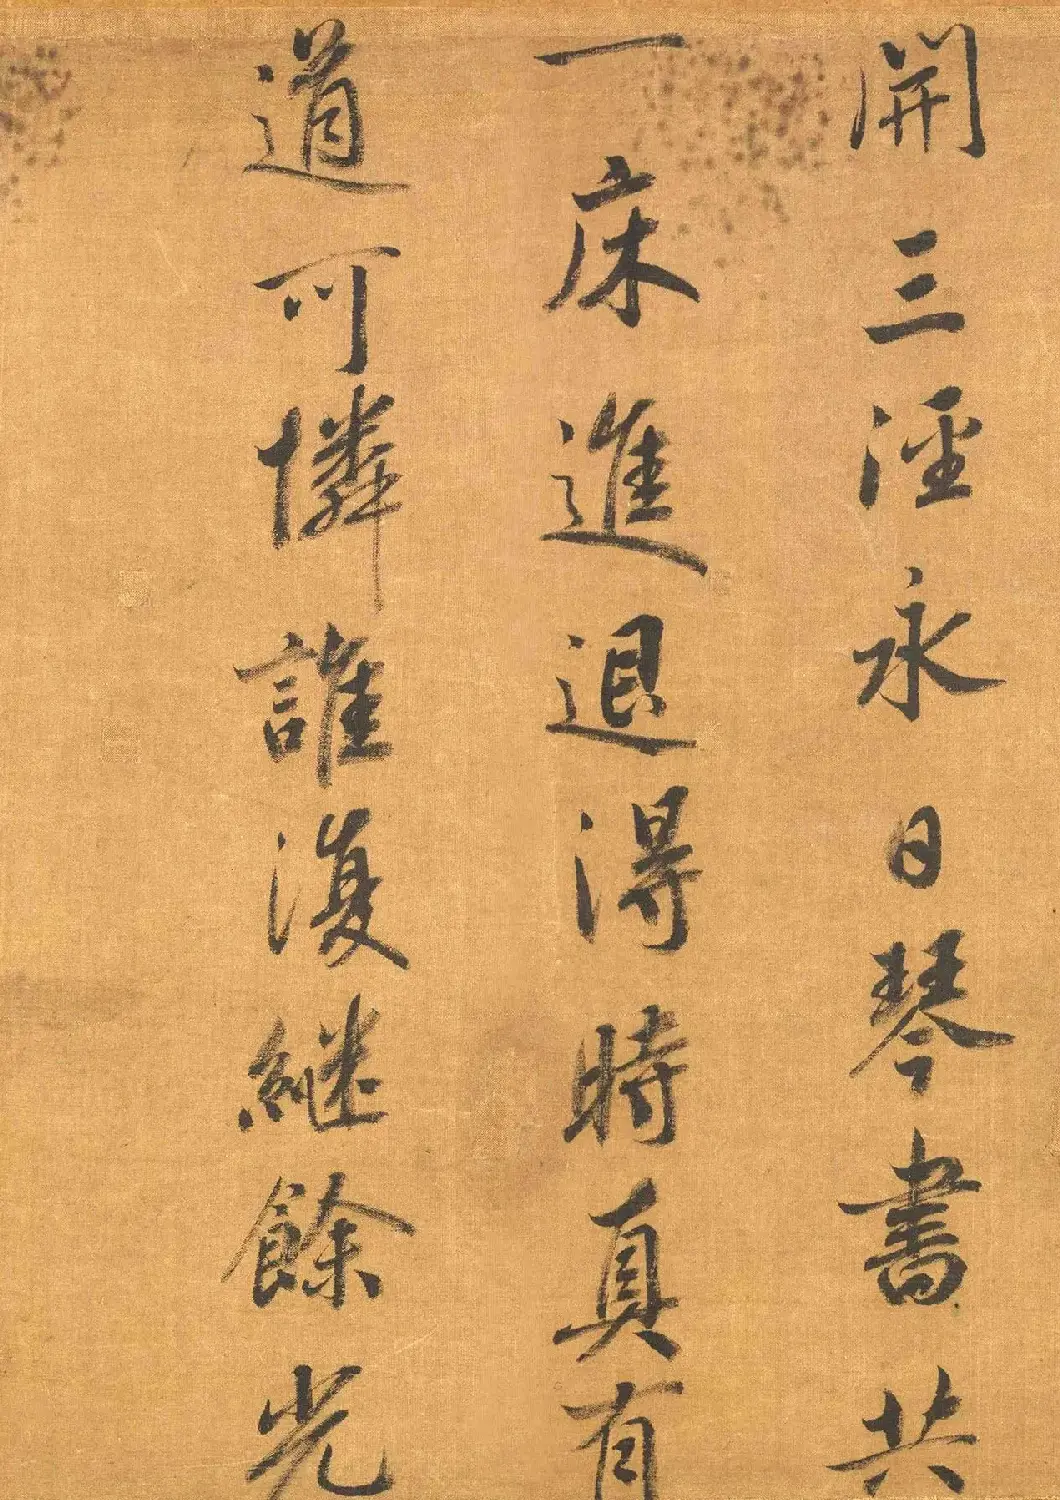 開三逕永日琴書共
一床進退得時真有
道可憐誰復繼餘光